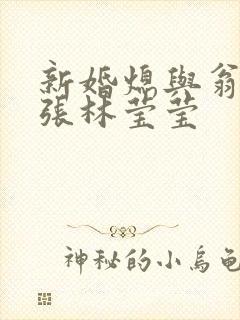 新婚熄與翁
張林莹莹
神秘的小烏龜